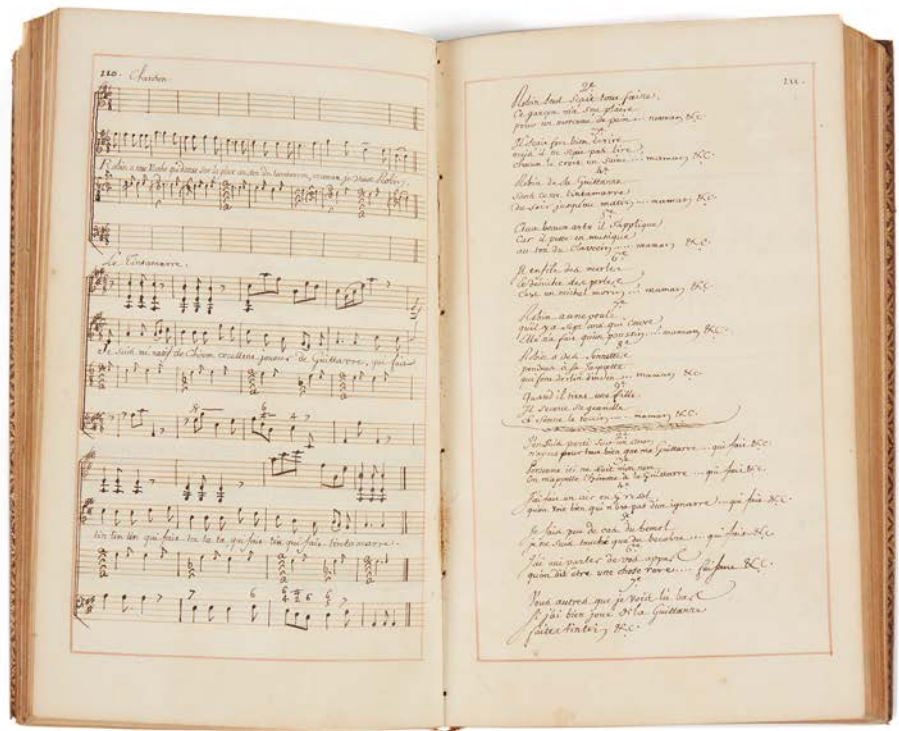 220. Chanson.
Robin a une Vache qui danse sur la glace au son du tambourin, maman je veux Robin,
Le Tintamarre.
Je suis né natif de Choum excellent joueur de Guittarre, qui fait
tin tin tin qui fait ta ta ta, qui fait tin qui fait tintamarre.
221.
2e
Robin tout sçait tout faire,
Ce garçon m'a sçu plaire
pour un morceau de pain ... maman, &c.
3e
Il sçait fort bien écrire
mais il ne sçait pas lire,
chacun le croit en ... maman, &c.
4e
Robin de sa Guittarre
sans cesse tintamarre
du soir jusqu'au matin ... maman, &c.
5e
Aux beaux arts il s'applique
Car il pette en musique
au son du Clavecin .... maman, &c.
6e
Il enfile des merles
Et déniche des perles
C'est un michel morin ... maman, &c.
7e
Robin a une poule
qu'il y a sept ans qui couve
Elle n'a fait qu'un poussin ... maman, &c.
8e
Robin a des Sonnettes
pendues à sa
qui font derlin dindin ... maman, &c.
9e
Quand il tient une fille
Il
Et sonne le tocsin ... maman, &c.
2e
J'en suis parti sur un
n'ayant pour tout bien que ma Guittarre ... qui fait &c.
3e
Personne ici ne sçait mon nom
On m'appelle l'homme à la Guittarre ... qui fait &c.
4e
J'ai fait un air en G re sol
qu'on voit bien qui n'est pas d'un ignare ... qui fait &c.
5e
Je fais peu de cas du bemol
je ne suis touché que du becarre ... qui fait &c.
6e
J'ai ouï parler de vos appas
qu'on dit être une chose rare .... qui font &c.
7e
Vous autres que je vois là bas
Si j'ai bien joué de la Guittarre
faites tintin, &c.